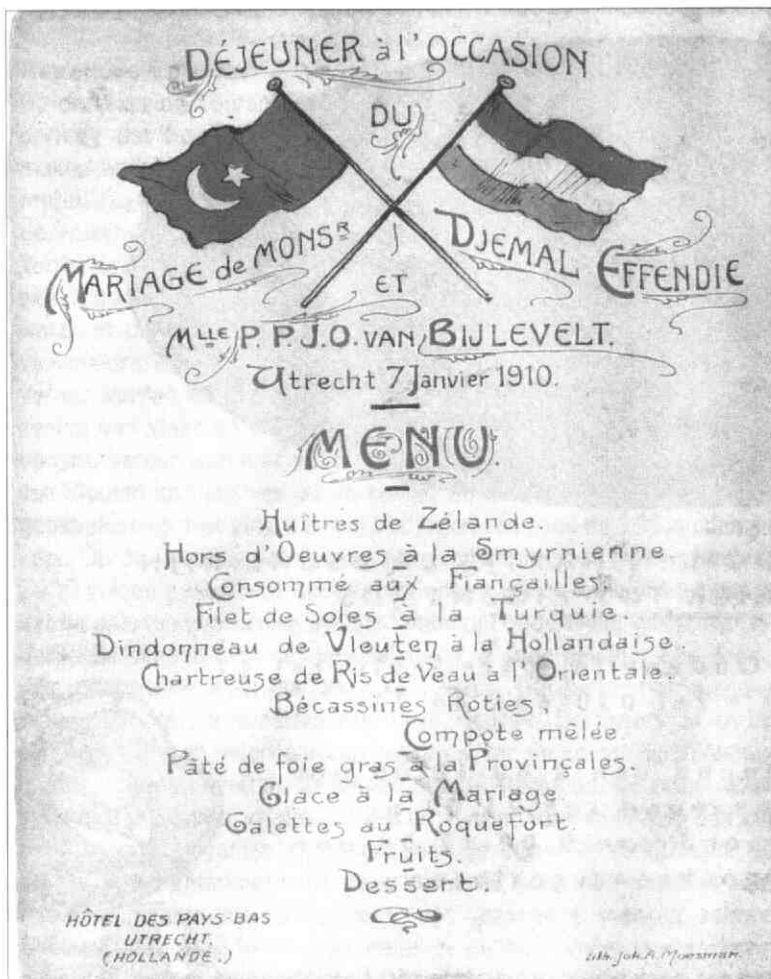 DÉJEUNER à l'OCCASION
DU
MARIAGE de MONSR DJEMAL EFFENDIE
ET
MLLE P. P. J. O. VAN BIJLEVELT.
Utrecht 7 Janvier 1910.
MENU.
Huîtres de Zélande.
Hors d'Oeuvres à la Smyrnienne.
Consommé aux Fiançailles.
Filet de Soles à la Turquie
Dindonneau de Vleuten à la Hollandaise.
Chartreuse de Ris de Veau a l'Orientale.
Bécassines Roties,
Compote mêlée.
Pâté de foie gras à la Provinçales.
Glace à la Mariage.
Galettes au Roquefort.
Fruits.
Dessert.
HÔTEL DES PAYS-BAS
UTRECHT.
(HOLLANDE.)
Lith. Joh. A. Moesman.